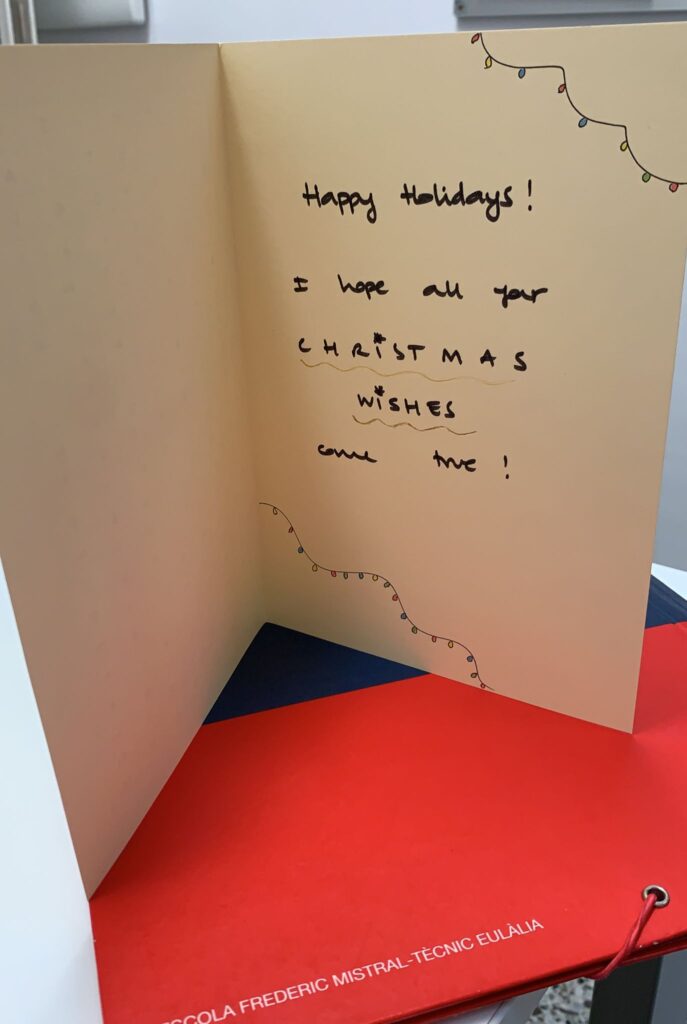 Happy Holidays!
I hope all your
CHRISTMAS
WISHES
come true!
ESCOLA FREDERIC MISTRAL-TÈCNIC EULÀLIA